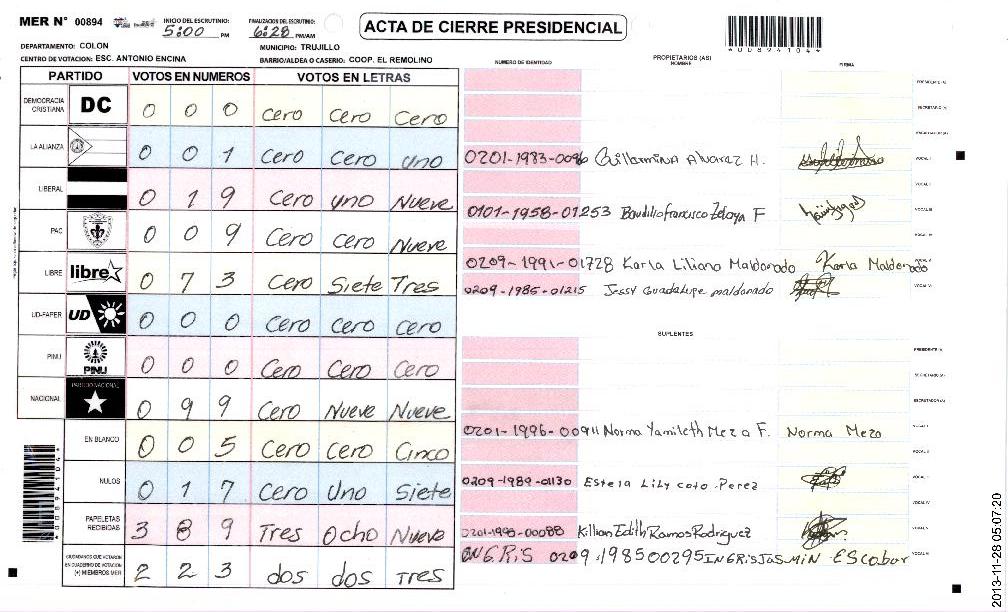 MER N° 00894
INICIO DEL ESCRUTINIO: 5:00 PM
FINALIZACION DEL ESCRUTINIO: 6:28 PM/AM
ACTA DE CIERRE PRESIDENCIAL
*00894104*
DEPARTAMENTO: COLON
MUNICIPIO: TRUJILLO
CENTRO DE VOTACION: ESC. ANTONIO ENCINA
BARRIO/ALDEA O CASERIO: COOP. EL REMOLINO
PARTIDO VOTOS EN NUMEROS VOTOS EN LETRAS
DEMOCRACIA CRISTIANA DC 0 0 0 Cero Cero Cero
LA ALIANZA 0 0 1 Cero Cero uno
LIBERAL 0 1 9 Cero uno Nueve
PAC 0 0 9 Cero cero Nueve
LIBRE libre 0 7 3 Cero Siete Tres
UD-FAPER UD 0 0 0 Cero Cero Cero
PINU PINU 0 0 0 Cero Cero Cero
NACIONAL PARTIDO NACIONAL 0 9 9 Cero Nueve Nueve
EN BLANCO 0 0 5 Cero Cero Cinco
NULOS 0 1 7 Cero Uno Siete
PAPELETAS RECIBIDAS 3 8 9 Tres Ocho Nueve
CIUDADANOS QUE VOTARON EN CUADERNO DE VOTACION (+) MIEMBROS MER 2 2 3 dos dos Tres
*00894104*
NUMERO DE IDENTIDAD PROPIETARIOS (AS) NOMBRE FIRMA
PRESIDENTE (A)
SECRETARIO (A)
ESCRUTADOR (A)
0201-1983-0096 Guillermina Alvarez H. VOCAL I
VOCAL II
0101-1958-01253 Baudilio francisco Zelaya F VOCAL III
VOCAL IV
0209-1991-01728 Karla Liliana Maldonado Karla Maldonado VOCAL V
0209-1985-01215 Jessy Guadalupe maldonado VOCAL VI
SUPLENTES
PRESIDENTE (A)
SECRETARIO (A)
ESCRUTADOR (A)
0201-1996-00911 Norma Yamileth Meza F. Norma Meza VOCAL I
VOCAL II
0209-1989-01130 Estela Lily coto Perez VOCAL III
VOCAL IV
0201-1993-00088 Killian Edith Ramos Rodriguez VOCAL V
INGRiS 0209 198500295 INGRiS JASMiN ESCobar VOCAL VI
2013-11-28 05:07:20